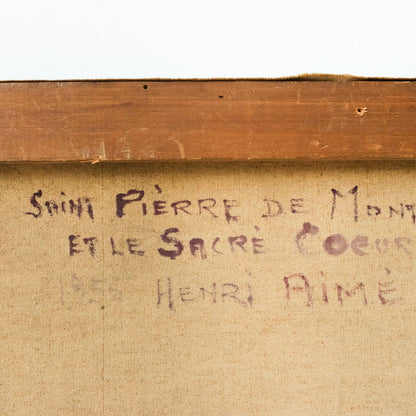 SAINT PIÈRRE DE MONT
ET LE SACRÈ COEUR
HENRI AIMÉ